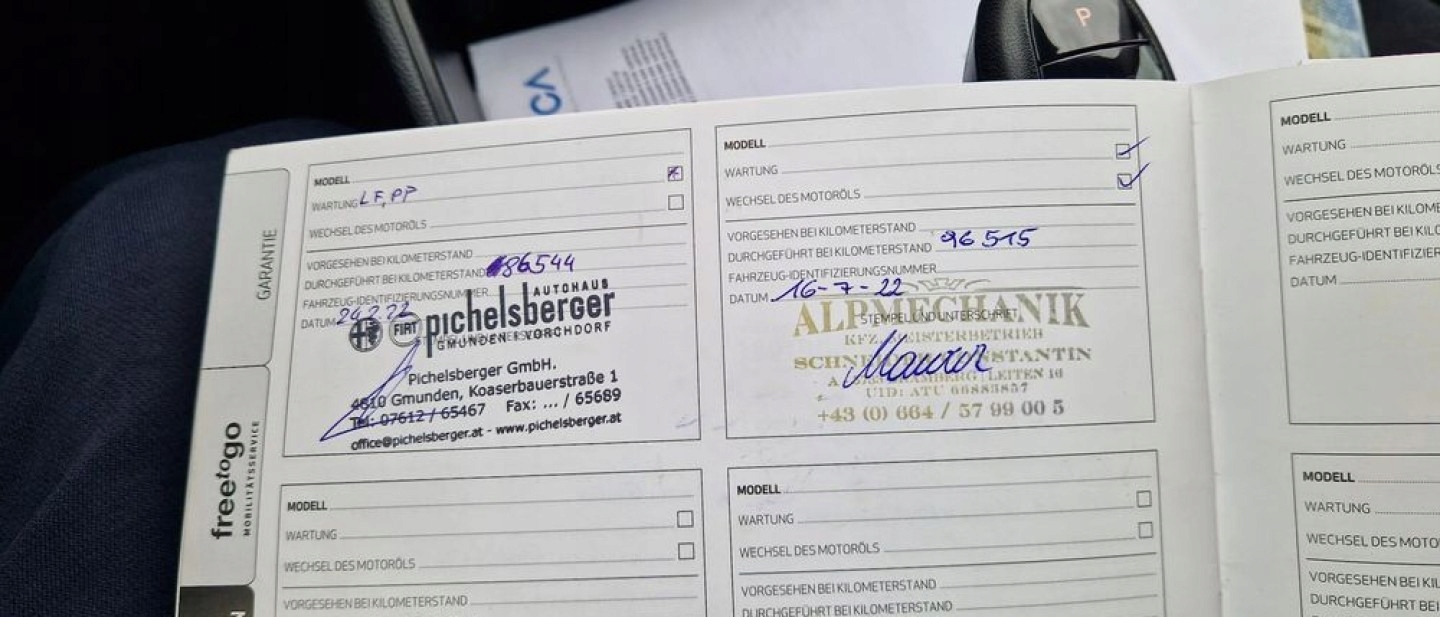 P
CA
GARANTIE
freetogo
MOBILITÄTSSERVICE
MODELL
WARTUNG LF, PP
WECHSEL DES MOTORÖLS
VORGESEHEN BEI KILOMETERSTAND
DURCHGEFÜHRT BEI KILOMETERSTAND 86544
FAHRZEUG-IDENTIFIZIERUNGSNUMMER
DATUM 24.2.22
AUTOHAUS
FIAT pichelsberger
GMUNDEN I VORCHDORF
Pichelsberger GmbH.
4810 Gmunden, Koaserbauerstraße 1
Tel: 07612 / 65467 Fax: ... / 65689
office@pichelsberger.at - www.pichelsberger.at
MODELL
WARTUNG
WECHSEL DES MOTORÖLS
VORGESEHEN BEI KILOMETERSTAND
DURCHGEFÜHRT BEI KILOMETERSTAND 96515
FAHRZEUG-IDENTIFIZIERUNGSNUMMER
DATUM 16-7-22
ALPMECHANIK
STEMPEL UND UNTERSCHRIFT
KFZ MEISTERBETRIEB
UID: ATU 66883857
+43 (0) 664 / 57 99 00 5
MODELL
WARTUNG
WECHSEL DES MOTORÖLS
VORGESEHEN BEI KILOME
DURCHGEFÜHRT BEI KILO
FAHRZEUG-IDENTIFIZIER
DATUM
MODELL
WARTUNG
WECHSEL DES MOTORÖLS
VORGESEHEN BEI KILOMETERSTAND
MODELL
WARTUNG
WECHSEL DES MOTORÖLS
VORGESEHEN BEI KILOMETERSTAND
DURCHGEFÜHRT BEI KILOMETERSTAND
MODELL
WARTUNG
WECHSEL DES MOTO
VORGESEHEN BEI KIL
DURCHGEFÜHRT BEI